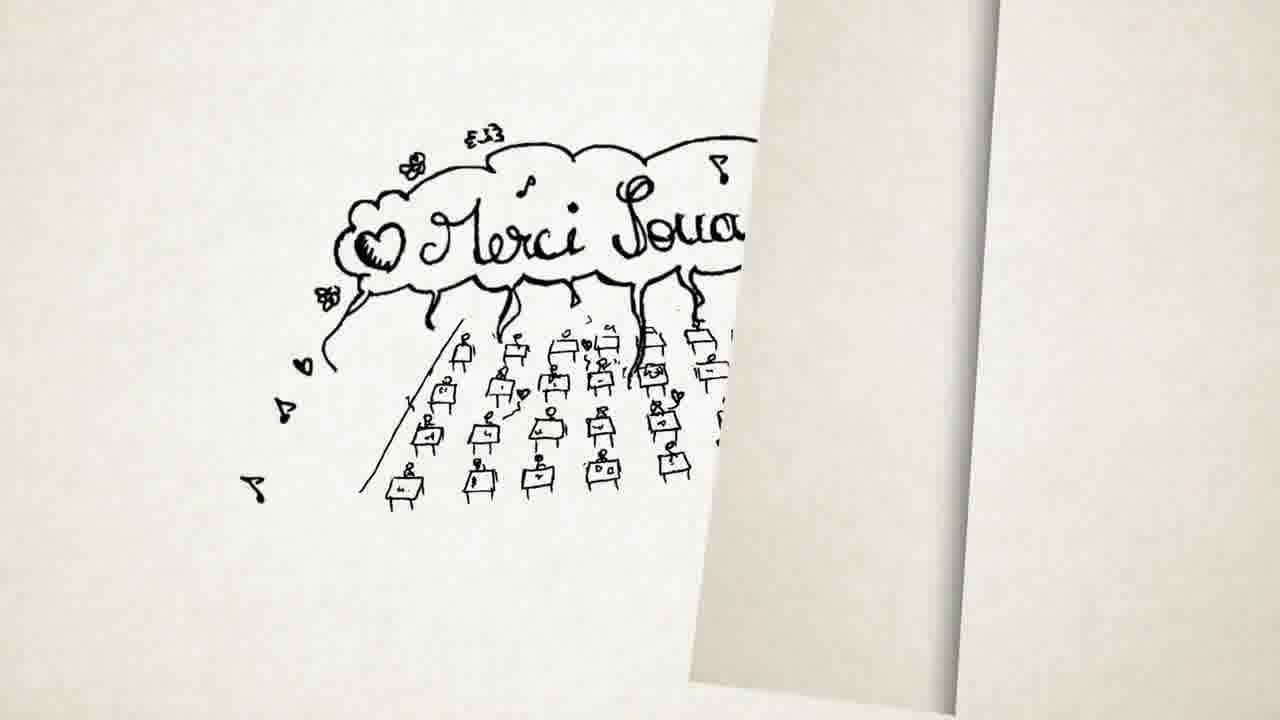 Merci Soua